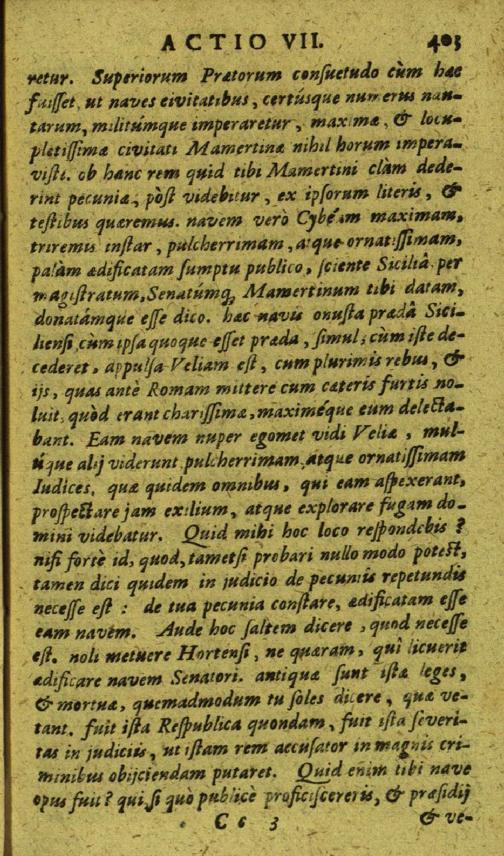 ACTIO VII. 403
retur. Superiorum Prætorum consuetudo cùm hæc
fuisset, ut naves civitatibus, certúsque numerus nau-
tarum, militúmque imperaretur, maximæ, & locu-
pletissimæ civitati Mamertinæ nihil horum impera-
visti. ob hanc rem quid tibi Mamertini clàm dede-
rint pecuniæ, pòst videbitur, ex ipsorum literis, &
testibus quæremus. navem verò Cybęam maximam,
triremis instar, pulcherrimam, atque ornatissimam,
palàm ædificatam sumptu publico, sciente Siciliâ per
magistratum, Senatúmq; Mamertinum tibi datam,
donatámque esse dico. hæc navis onusta prædâ Sici-
liensi, cùm ipsa quoque esset præda, simul, cùm iste de-
cederet, appulsa Veliam est, cum plurimis rebus, &
ijs, quas antè Romam mittere cum cæteris furtis no-
luit, quòd erant charissimæ, maximéque eum delecta-
bant. Eam navem nuper egomet vidi Veliæ, mul-
tíque alij viderunt, pulcherrimam, atque ornatissimam
Iudices, quæ quidem omnibus, qui eam aspexerant,
prospectare jam exilium, atque explorare fugam do-
mini videbatur. Quid mihi hoc loco respondebis?
nisi fortè id, quod, tametsi probari nullo modo potest,
tamen dici quidem in judicio de pecuniis repetundis
necesse est: de tua pecunia constare, ædificatam esse
eam navem. Aude hoc saltem dicere, quod necesse
est. noli metuere Hortensi, ne quæram, quî licuerit
ædificare navem Senatori. antiquæ sunt istæ leges,
& mortuæ, quemadmodum tu soles dicere, quæ ve-
tant. fuit ista Respublica quondam, fuit ista severi-
tas in judiciis, ut istam rem accusator in magnis cri-
minibus objiciendam putaret. Quid enim tibi nave
opus fuit? qui, si quò publicè proficiscereris, & præsidij
C c 3 & ve-